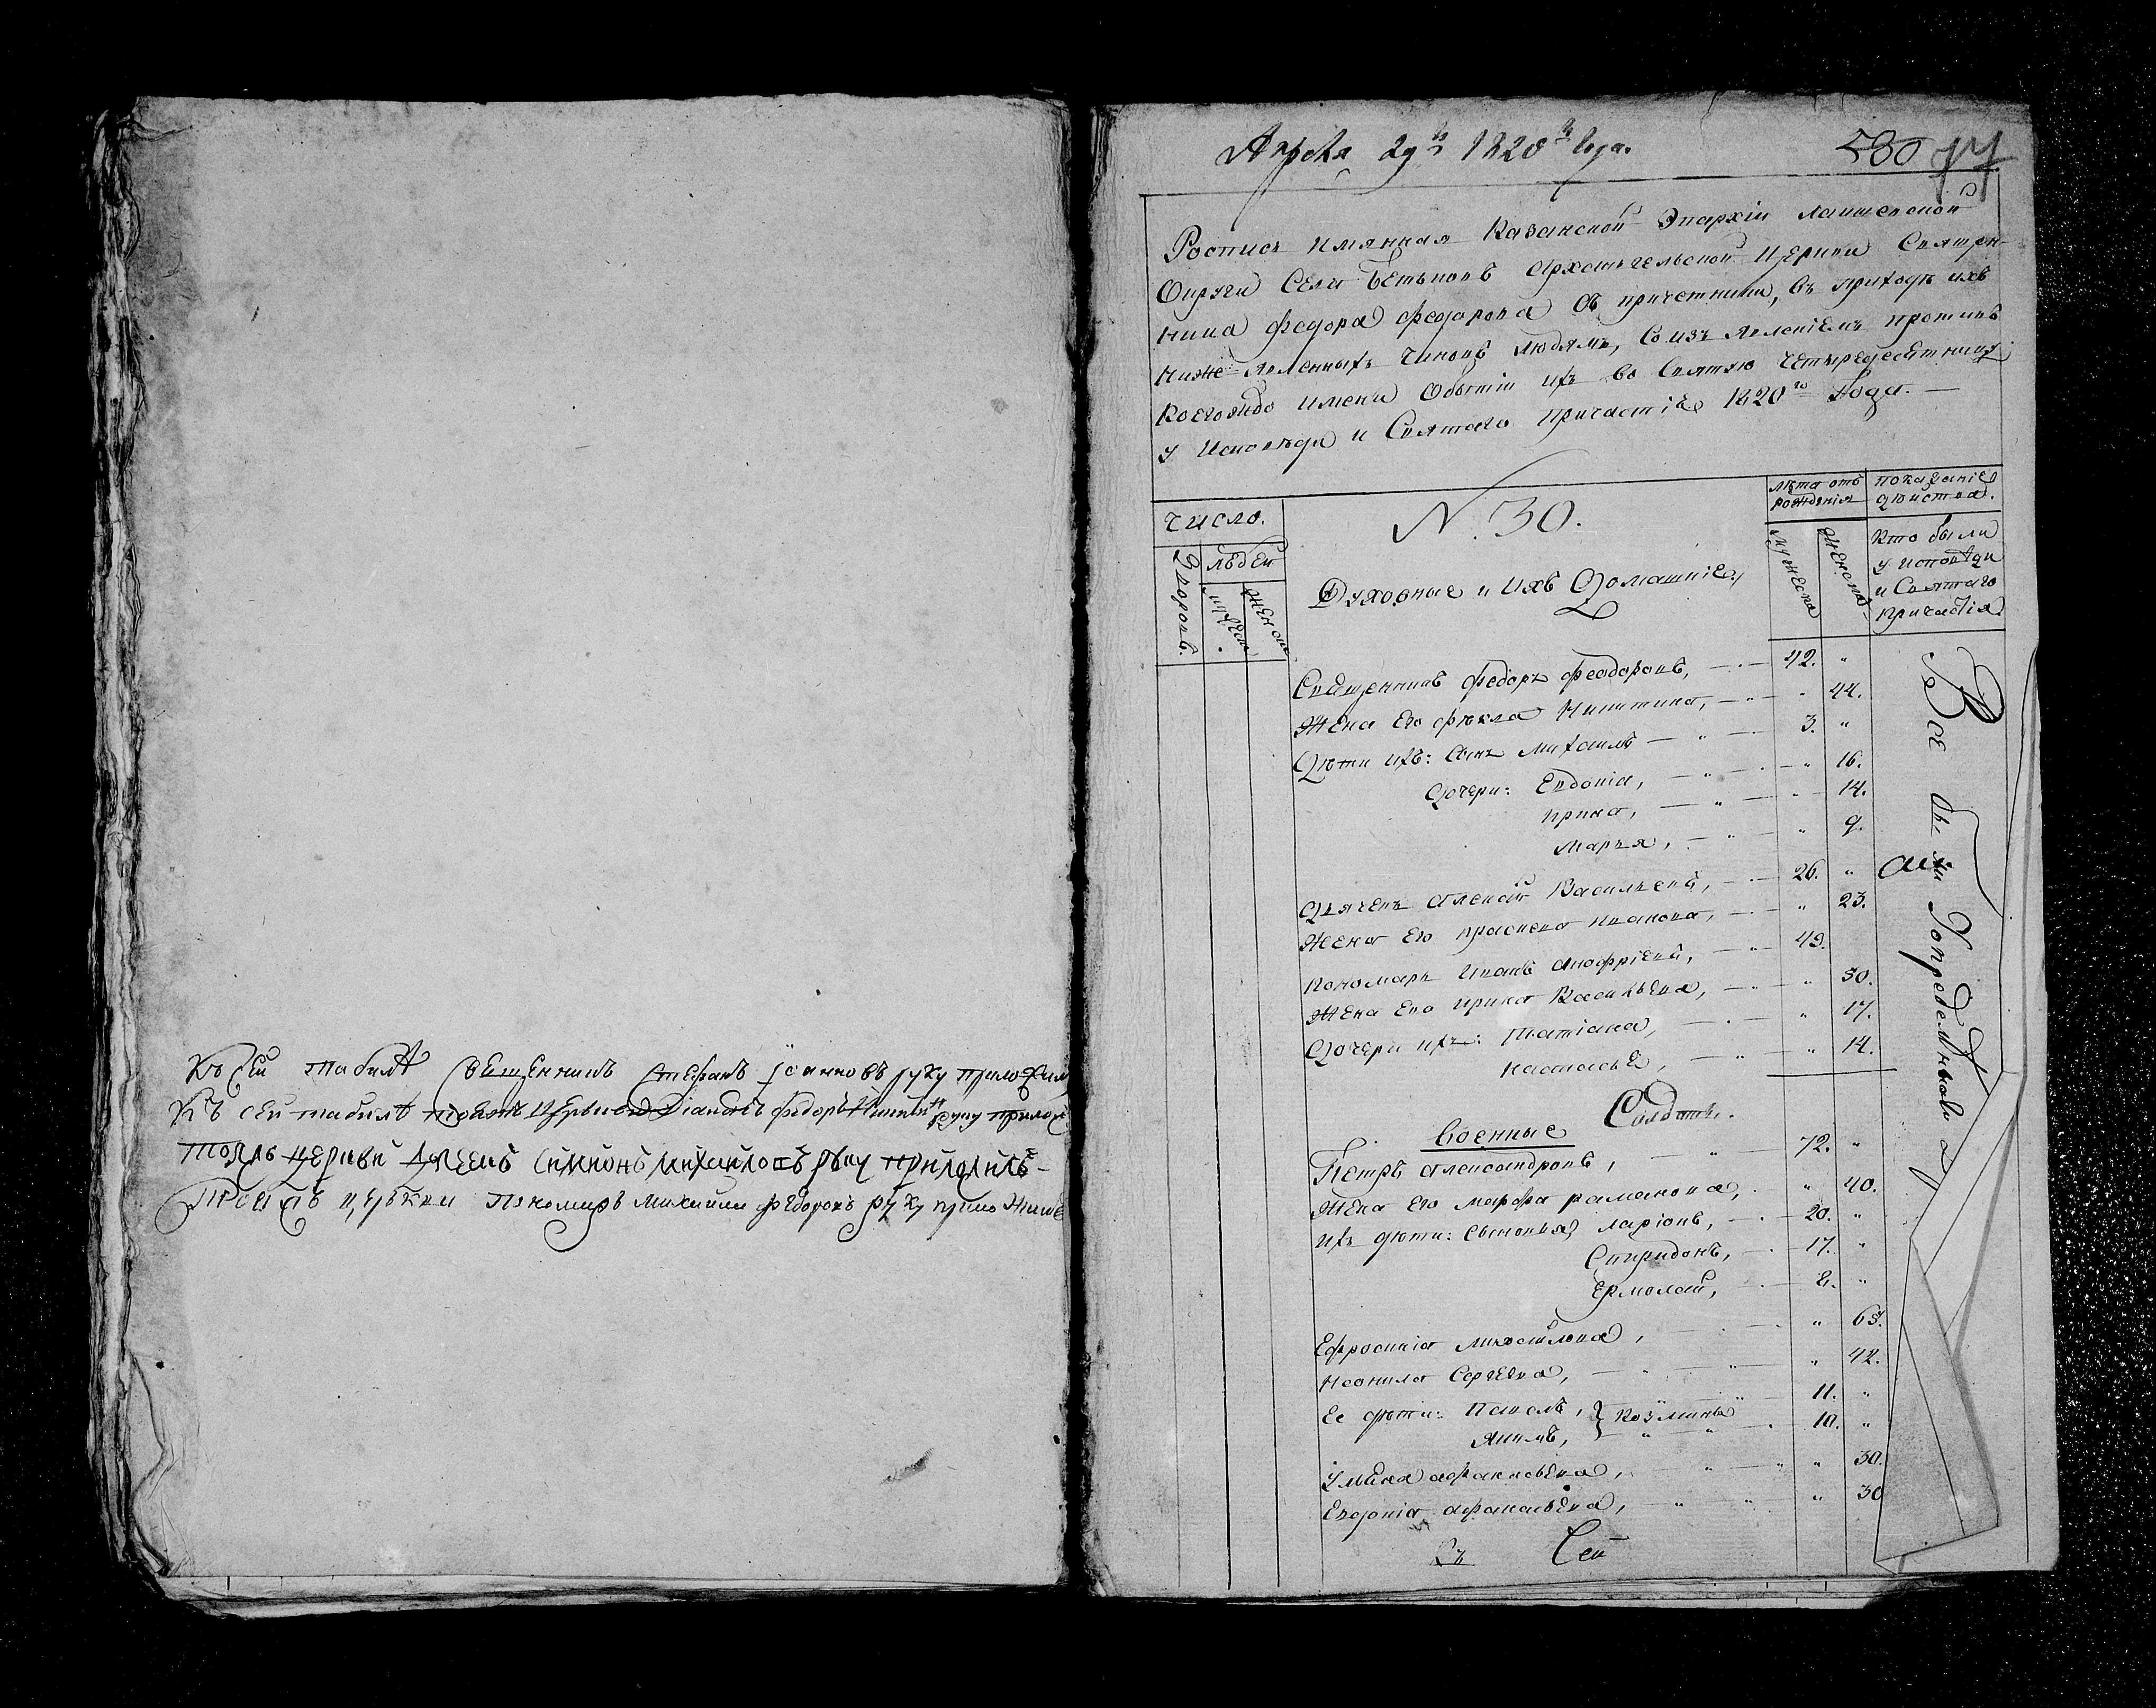 Къ сей табили Священникъ Стефанъ Іоанновъ руку приложилъ
Къ сей табили тоежъ церьки Діаконъ Федоръ Никитинъ руку прилож
тояжъ церкви дьячекъ Симионъ Михайловъ руку приложилъ
Тоежъ церькви пономаръ Михаила Федоровъ руку приложилъ
Апреля 29 1820 года.
580 77
Роспись имянная Казанской Эпархіи Лаишевской
Округи Села Бетьковъ Архангельской Церкви Священ-
ника Федора Федорова съ причетники, въ приходе ихъ
ниже явленныхъ чиновъ людямъ, со изъявленіемъ противъ
коегождо имени о бытіи ихъ во Святую четыредесятницу
у Исповеди и Святаго причастія 1820го Года.
число.
N. 30.
лѣта отъ рожденія
показаніе дѣйства.
Дворовъ.
людей
мужеск.
женск.
Духовные и Ихъ Домашніе,
мужеска
женска
Кто были у исповѣди и Святаго причастія
Священникъ Федоръ Феодоровъ, 42. "
Жена Его Фекла Никитина, " 44.
Дѣти ихъ: Сынъ Михаилъ 3. "
Дочери: Евдокіа, " 16.
Ирина, " 14.
Марья, " 9.
Дьячекъ Алексей Васильевъ, 26. "
Жена Его Прасковя Иванова, " 23.
Пономарь Иванъ Анофріевъ, 49.
Жена Его Ирина Васильева, " 50.
Дочери ихъ: Татіана, " 17.
Настасье, " 14.
Военные Солдаты.
Петръ Александровъ, 72. "
Жена Его Марфа Раманова, " 40.
Ихъ дѣти: Сыновья Ларіонъ, 20. "
Спиридонъ, 17. "
Ермолай, 8. "
Ефросиніа Михайлова, " 63.
Неонила Сергеева, " 42.
Ее дѣти: Павелъ, } Козмины 11. "
Якимъ, 10. "
Ульяна Афанасьева, " 30.
Евдокіа Афанасьева, " 30
Все были
Съ Сей